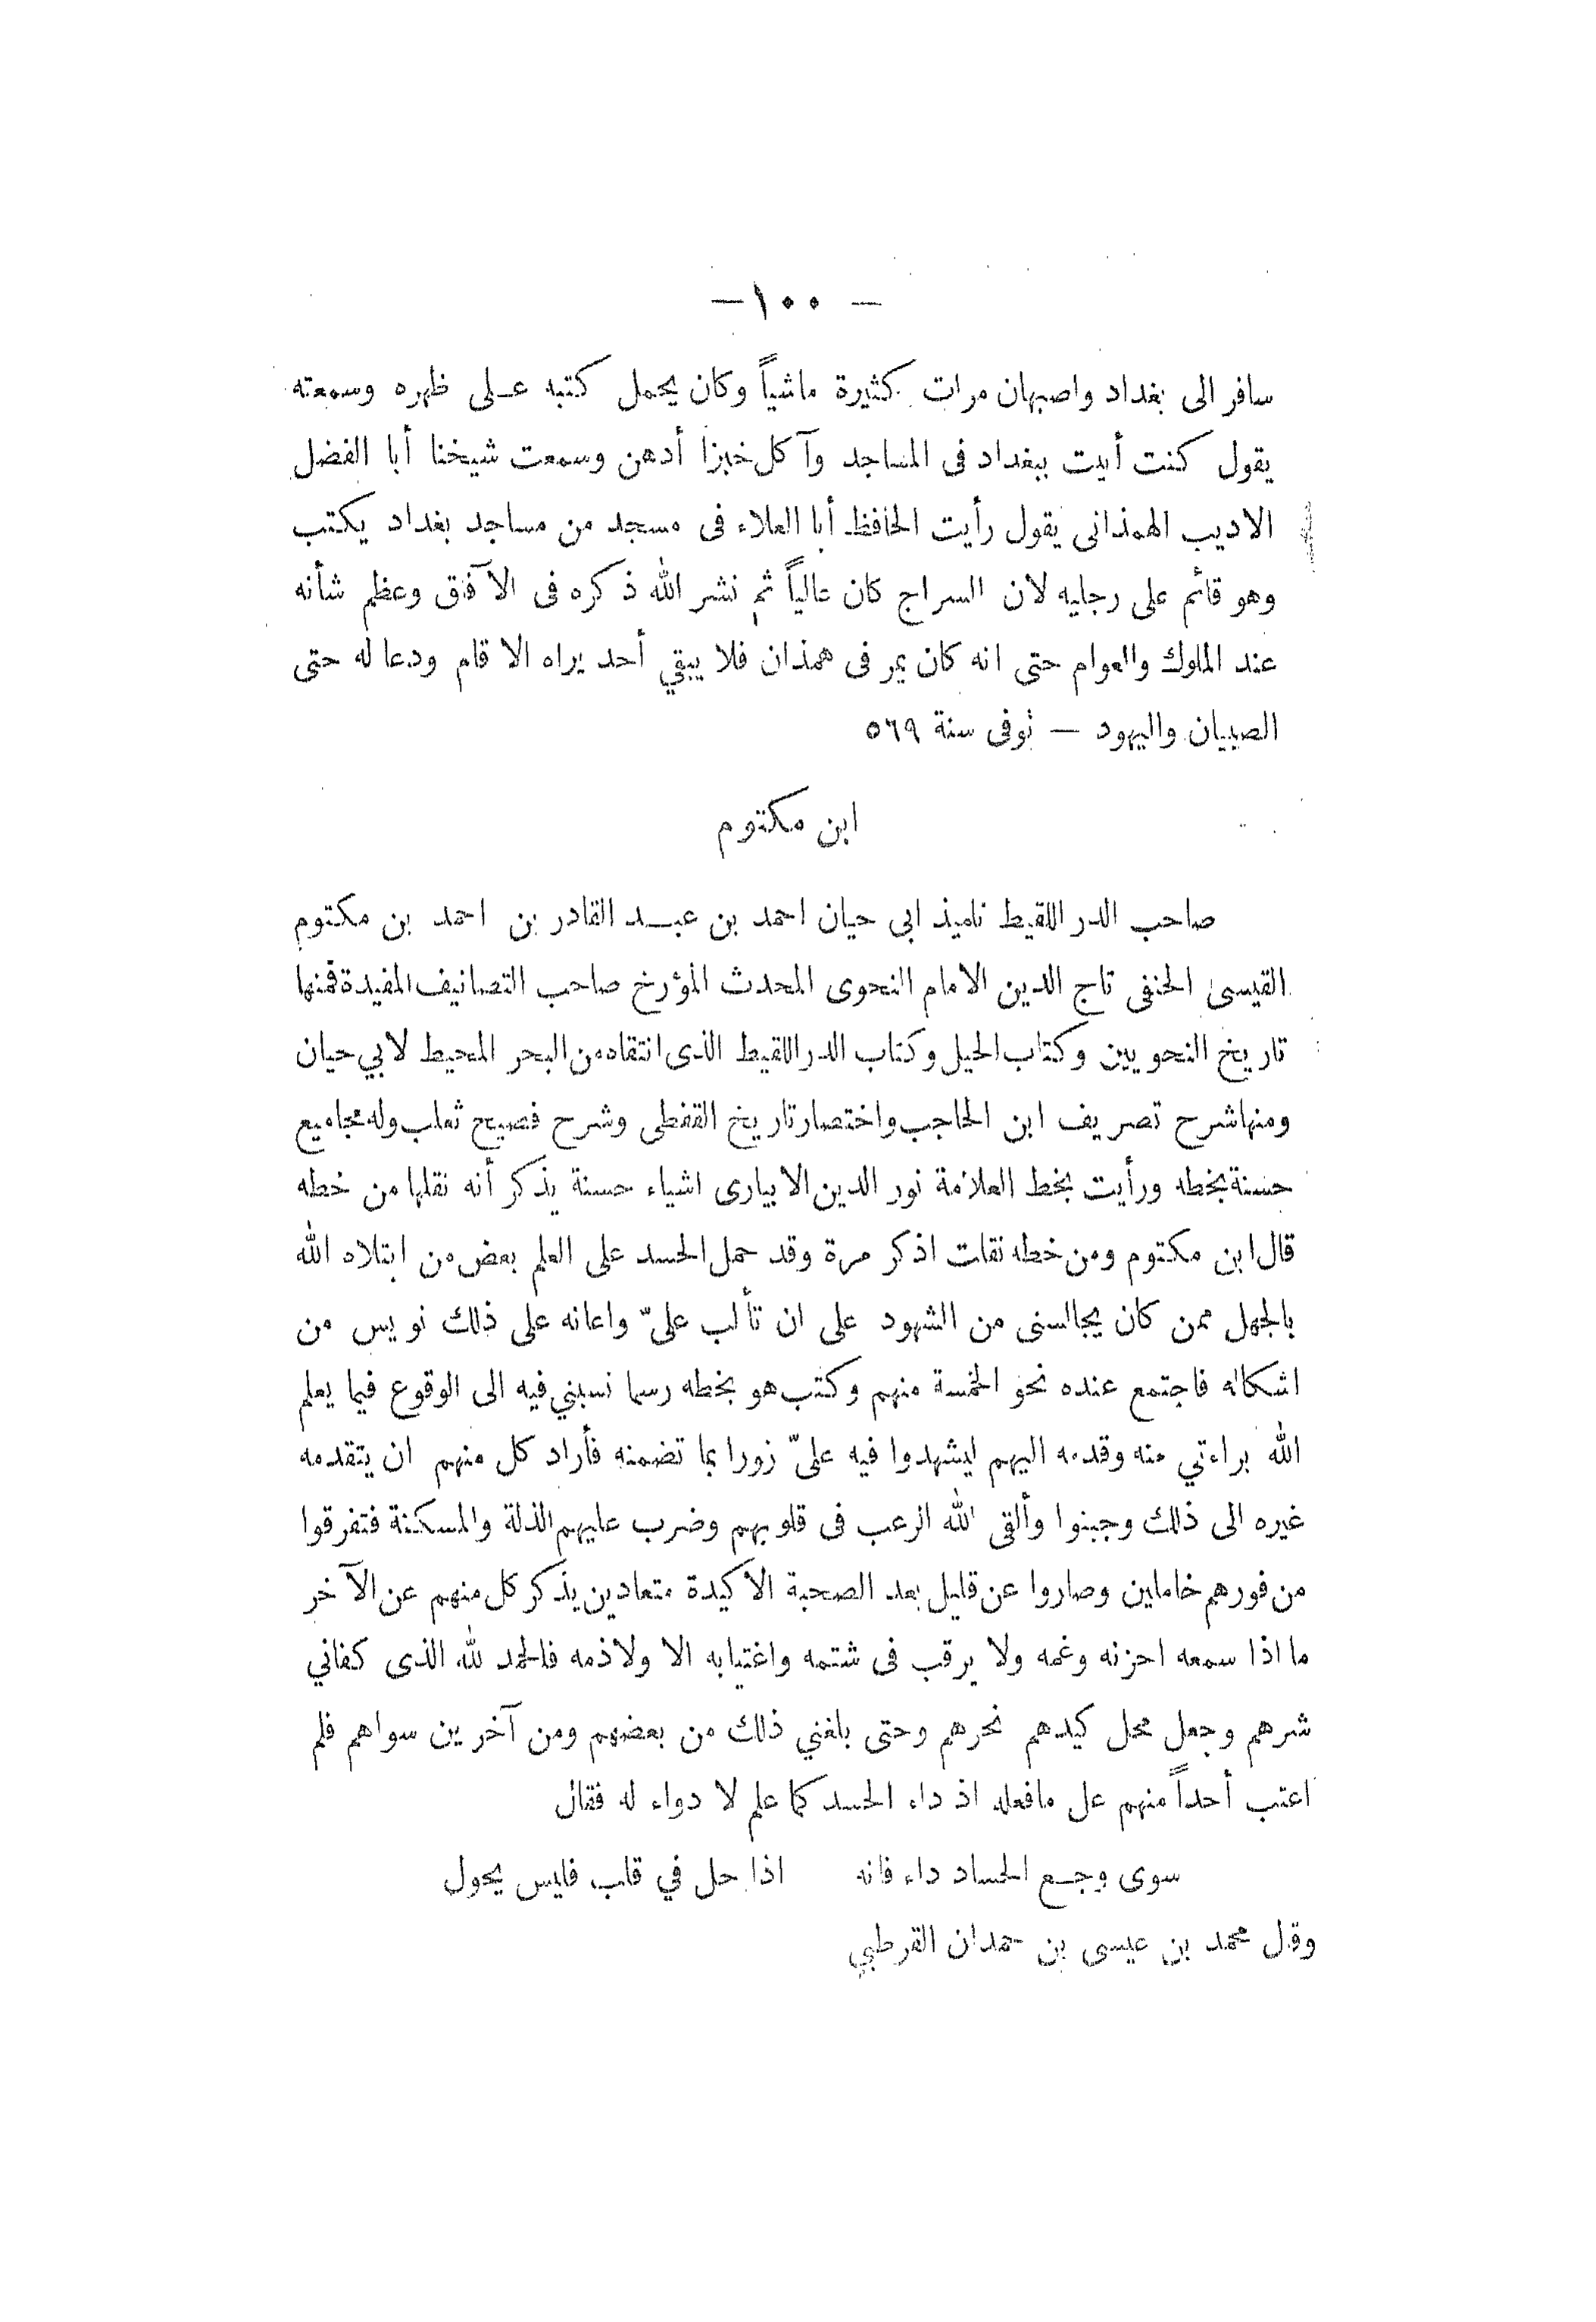 — ١٠٠ —
سافر الى بغداد واصبهان مرات كثيرة ماشياً وكان يحمل كتبه عـلى ظهره وسمعته
يقول كنت أبيت ببغداد فى المساجد وآكل خبزا أدهن وسمعت شيخنا أبا الفضل
الاديب الهمذانى يقول رأيت الحافظ أبا العلاء فى مسجد من مساجد بغداد يكتب
وهو قائم على رجليه لان السراج كان عالياً ثم نشر الله ذكره فى الآفاق وعظم شأنه
عند الملوك والعوام حتى انه كان يمر فى همذان فلا يبقي أحد يراه الا قام ودعا له حتى
الصبيان واليهود — توفى سنة ٥٦٩
ابن مكتوم
صاحب الدر اللقيط تلميذ ابى حيان احمد بن عبـد القادر بن احمد بن مكتوم
القيسى الحنفى تاج الدين الامام النحوى المحدث المؤرخ صاحب التصانيف المفيدة فمنها
تاريخ النحويين وكتاب الحيل وكتاب الدر اللقيط الذى انتقاه من البحر المحيط لابي حيان
ومنها شرح تصريف ابن الحاجب واختصار تاريخ القفطى وشرح فصيح ثعلب وله مجاميع
حسنة بخطه ورأيت بخط العلامة نور الدين الابيارى اشياء حسنة يذكر أنه نقلها من خطه
قال ابن مكتوم ومن خطه نقلت اذكر مرة وقد حمل الحسد على العلم بعض من ابتلاه الله
بالجهل ممن كان يجالسنى من الشهود على ان تألب علىّ واعانه على ذلك نويس من
اشكاله فاجتمع عنده نحو الخمسة منهم وكتب هو بخطه رسما نسبني فيه الى الوقوع فيما يعلم
الله براءتي منه وقدمه اليهم ليشهدوا فيه علىّ زورا بما تضمنه فأراد كل منهم ان يتقدمه
غيره الى ذلك وجبنوا وألقى الله الرعب فى قلوبهم وضرب عليهم الذلة والمسكنة فتفرقوا
من فورهم خاملين وصاروا عن قليل بعد الصحبة الاكيدة متعادين يذكر كل منهم عن الآخر
ما اذا سمعه احزنه وغمه ولا يرقب فى شتمه واغتيابه الا ولا ذمه فالحمد لله الذى كفاني
شرهم وجعل محل كيدهم نحرهم وحتى بلغني ذلك من بعضهم ومن آخرين سواهم فلم
اعتب أحداً منهم عل مافعله اذ داء الحسد كما علم لا دواء له فقال
سوى وجـع الحساد داء فانه اذا حل في قلب فليس يحول
وقال محمد بن عيسى بن حمدان القرطبي